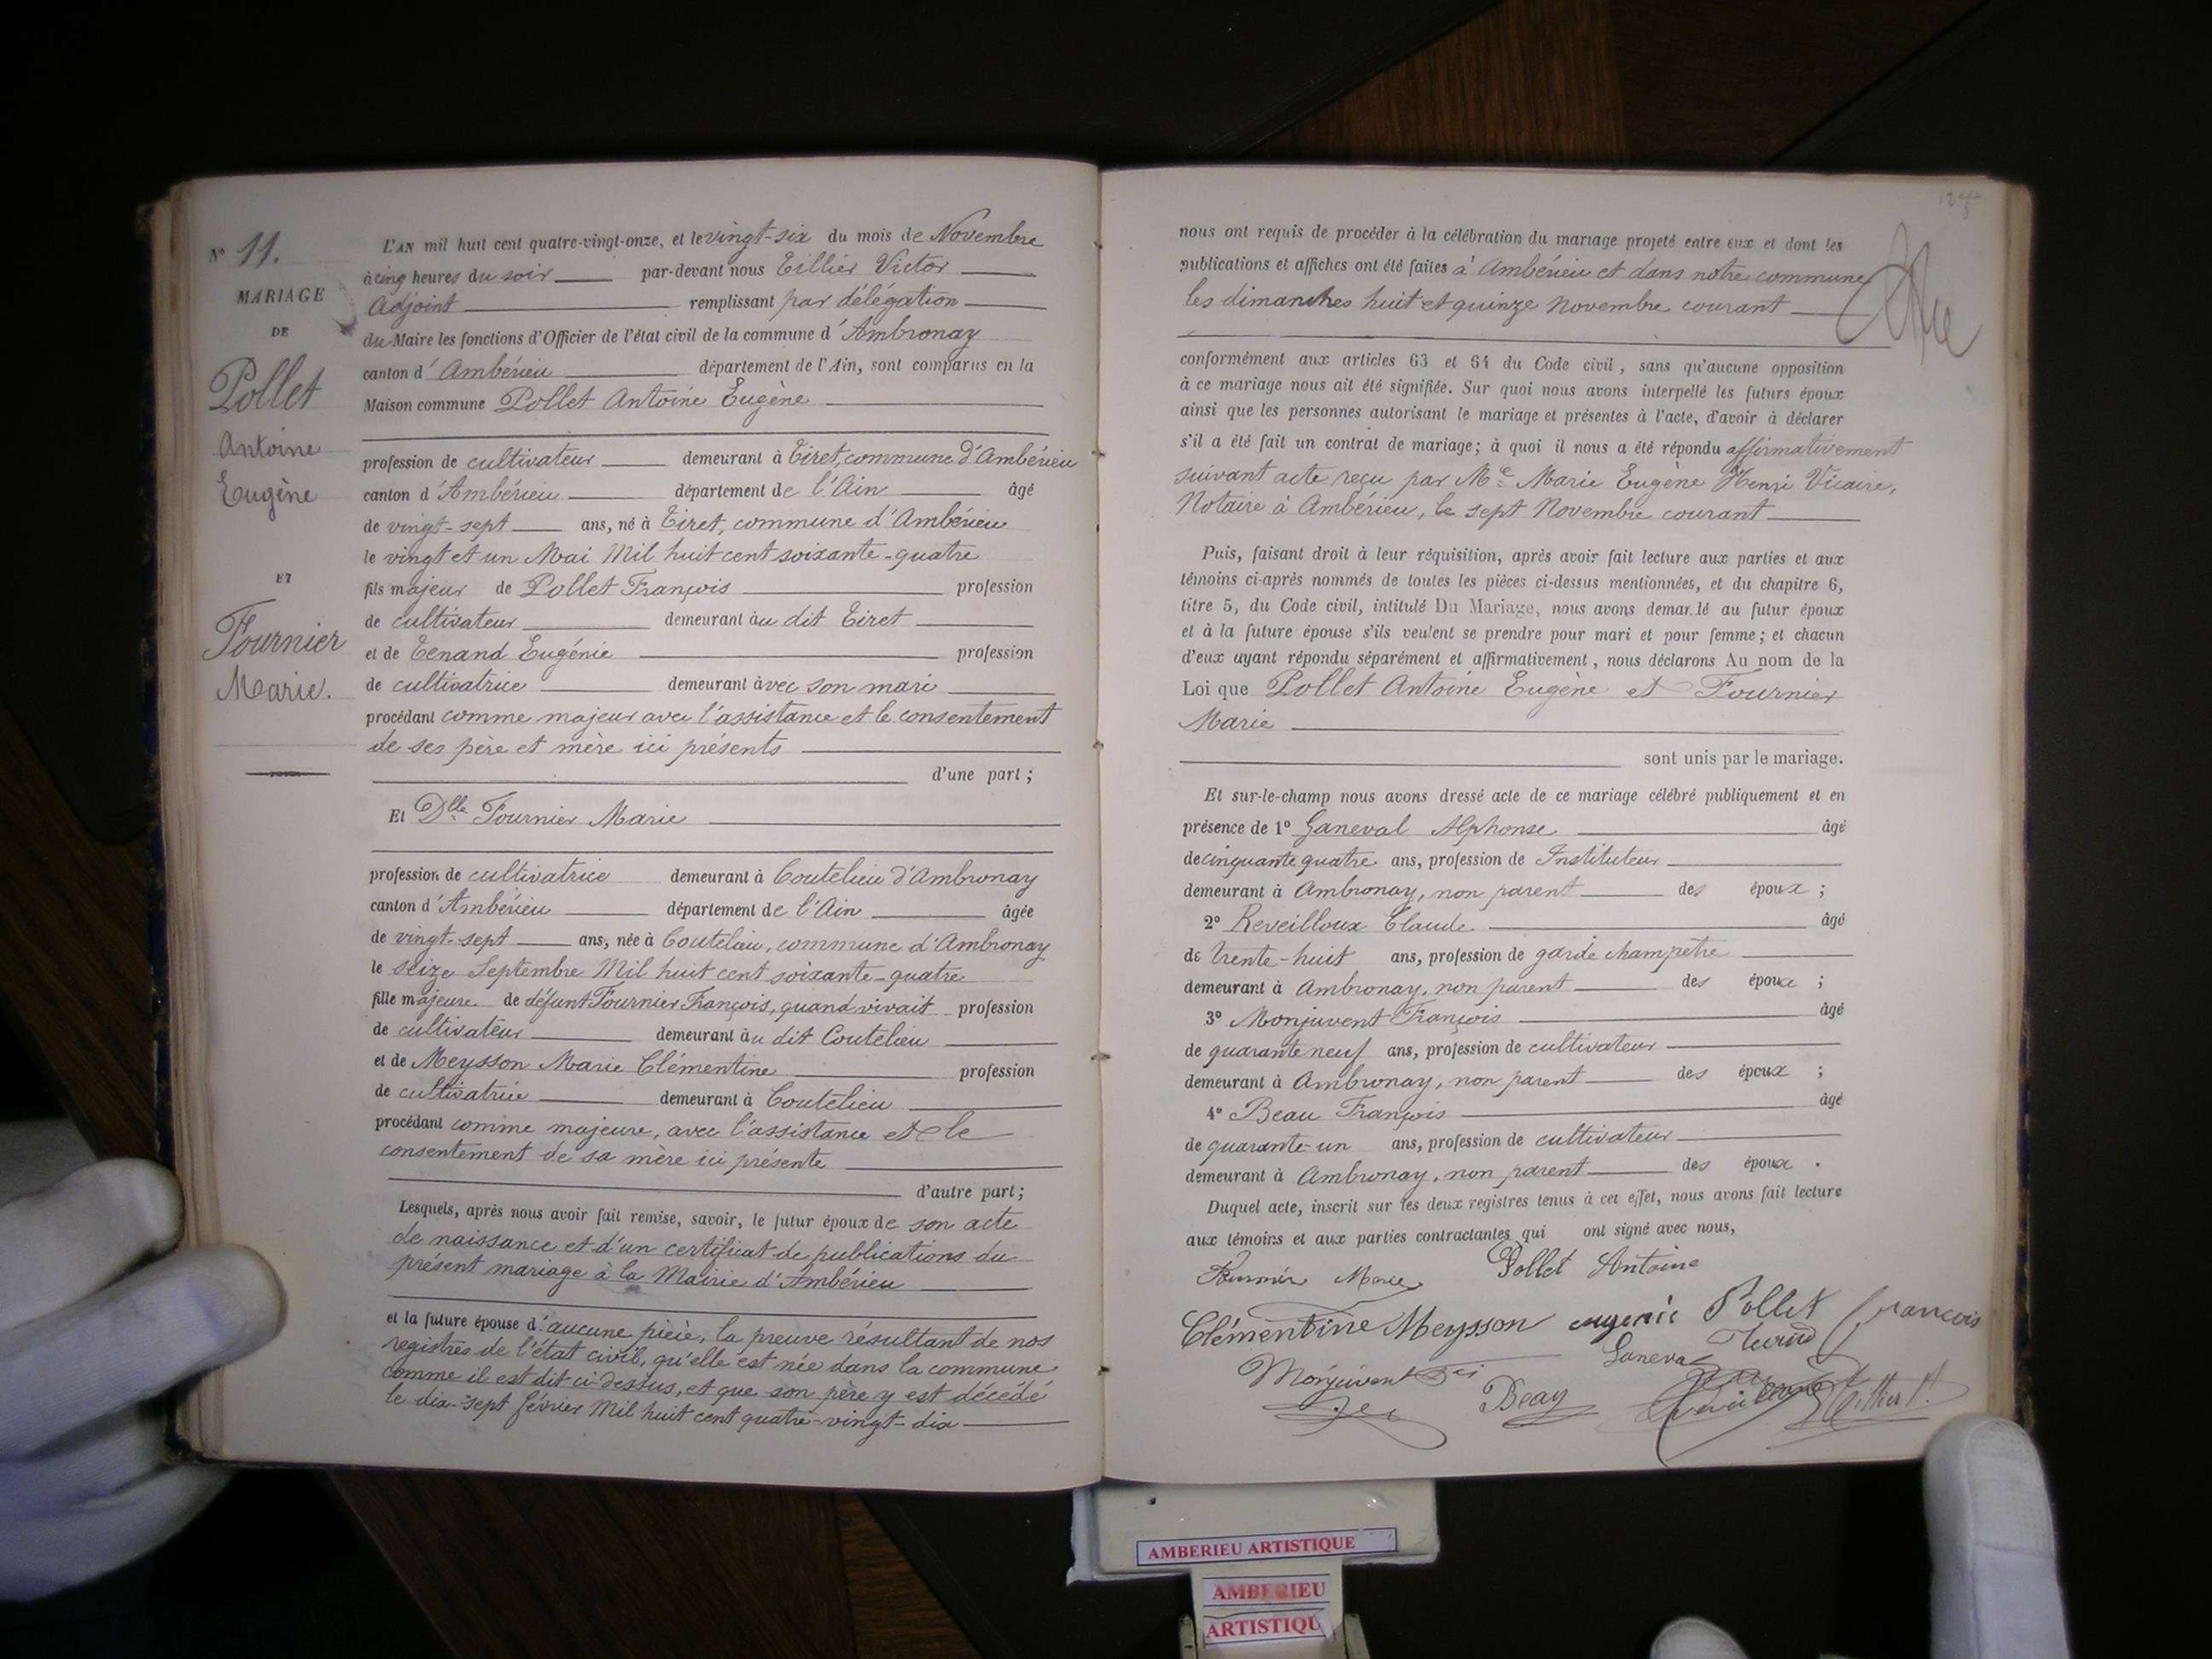 N° 11.
MARIAGE
DE
Pollet
Antoine
Eugène
ET
Fournier
Marie.
L'AN mil huit cent quatre-vingt-onze, et le vingt-six du mois de Novembre
à cinq heures du soir par-devant nous Tillier Victor
Adjoint remplissant par délégation
du Maire les fonctions d'Officier de l'état civil de la commune d'Ambronay
canton d'Ambérieu département de l'Ain, sont comparus en la
Maison commune Pollet Antoine Eugène
profession de cultivateur demeurant à Tiret, commune d'Ambérieu
canton d'Ambérieu département de l'Ain âgé
de vingt-sept ans, né à Tiret, commune d'Ambérieu
le vingt et un Mai Mil huit cent soixante-quatre
fils majeur de Pollet François profession
de cultivateur demeurant au dit Tiret
et de Tenand Eugénie profession
de cultivatrice demeurant avec son mari
procédant comme majeur avec l'assistance et le consentement
de ses père et mère ici présents
d'une part ;
Et Dlle Fournier Marie
profession de cultivatrice demeurant à Coutelieu d'Ambronay
canton d'Ambérieu département de l'Ain âgée
de vingt-sept ans, née à Coutelieu, commune d'Ambronay
le seize Septembre Mil huit cent soixante-quatre
fille majeure de défunt Fournier François, quand vivait profession
de cultivateur demeurant au dit Coutelieu
et de Meysson Marie Clémentine profession
de cultivatrice demeurant à Coutelieu
procédant comme majeure, avec l'assistance et le
consentement de sa mère ici présente
d'autre part ;
Lesquels, après nous avoir fait remise, savoir, le futur époux de son acte
de naissance et d'un certificat de publications du
présent mariage à la Mairie d'Ambérieu
et la future épouse d'aucune pièce, la preuve résultant de nos
registres de l'état civil, qu'elle est née dans la commune
comme il est dit ci-dessus, et que son père y est décédé
le dix-sept février Mil huit cent quatre-vingt-dix
nous ont requis de procéder à la célébration du mariage projeté entre eux et dont les
publications et affiches ont été faites à Ambérieu et dans notre commune
les dimanches huit et quinze Novembre courant
conformément aux articles 63 et 64 du Code civil, sans qu'aucune opposition
à ce mariage nous ait été signifiée. Sur quoi nous avons interpellé les futurs époux
ainsi que les personnes autorisant le mariage et présentes à l'acte, d'avoir à déclarer
s'il a été fait un contrat de mariage ; à quoi il nous a été répondu affirmativement
suivant acte reçu par Me Marie Eugène Henri Vicaire,
Notaire à Ambérieu, le sept Novembre courant
Puis, faisant droit à leur réquisition, après avoir fait lecture aux parties et aux
témoins ci-après nommés de toutes les pièces ci-dessus mentionnées, et du chapitre 6,
titre 5, du Code civil, intitulé Du Mariage, nous avons demandé au futur époux
et à la future épouse s'ils veulent se prendre pour mari et pour femme ; et chacun
d'eux ayant répondu séparément et affirmativement, nous déclarons Au nom de la
Loi que Pollet Antoine Eugène et Fournier
Marie
sont unis par le mariage.
Et sur-le-champ nous avons dressé acte de ce mariage célébré publiquement et en
présence de 1° Ganeval Alphonse âgé
de cinquante quatre ans, profession de Instituteur
demeurant à Ambronay, non parent des époux ;
2° Reveilloux Claude âgé
de trente-huit ans, profession de garde champêtre
demeurant à Ambronay, non parent des époux ;
3° Monjuvent François âgé
de quarante neuf ans, profession de cultivateur
demeurant à Ambronay, non parent des époux ;
4° Beau François âgé
de quarante-un ans, profession de cultivateur
demeurant à Ambronay, non parent des époux.
Duquel acte, inscrit sur les deux registres tenus à cet effet, nous avons fait lecture
aux témoins et aux parties contractantes qui ont signé avec nous,
Fournier Marie Pollet Antoine
Clémentine Meysson eugenie Pollet francois
Ganeval
Monjuvent Beau Tillier V.
AMBERIEU ARTISTIQUE
AMBERIEU
ARTISTIQU